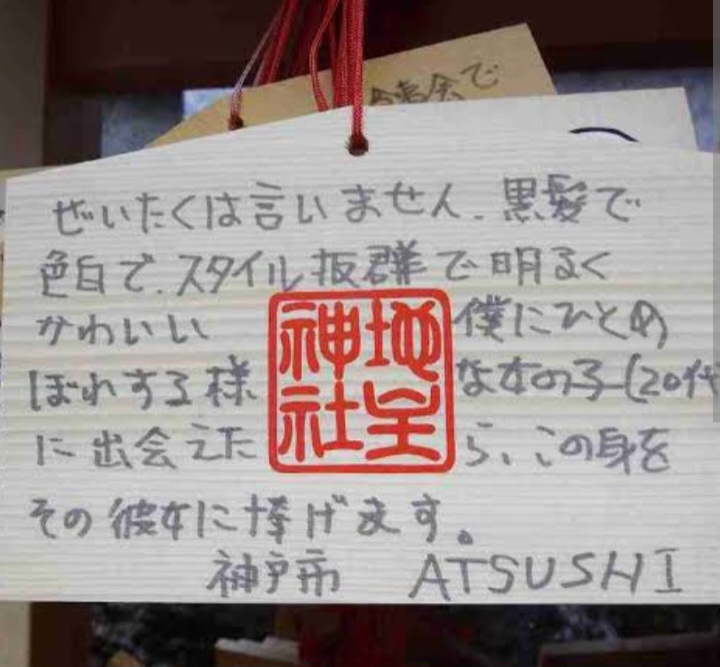 ぜいたくは言いません.黒髪で
色白で.スタイル抜群で明るく
かわいい 僕にひとめ
ぼれする様 な女の子(20代
に出会えた ら、この身を
その彼女に捧げます。
神戸市 ATSUSHI
地主
神社